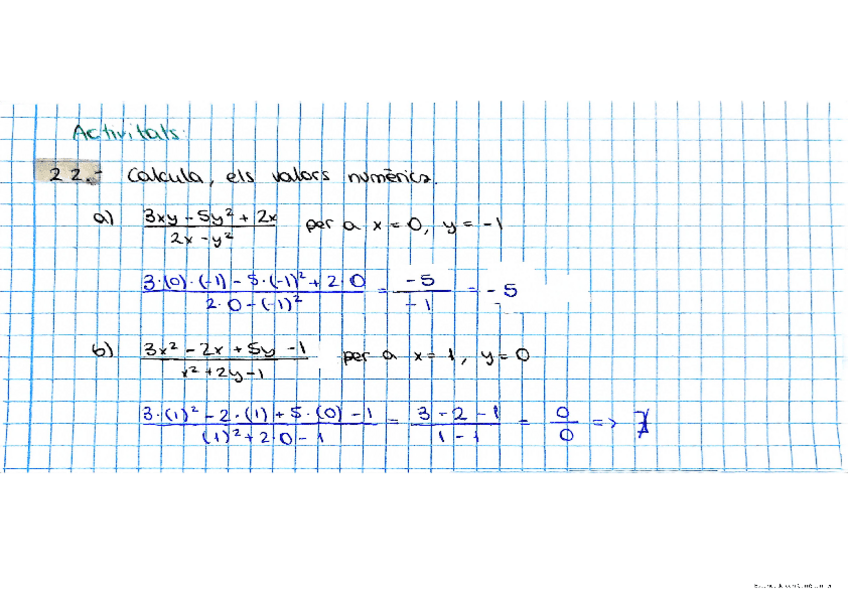 Activitats:
22.- Calcula, els valors numèrics.
a) (3xy - 5y² + 2x)/(2x - y²) per a x = 0, y = -1
(3·(0)·(-1) - 5·(-1)² + 2·0)/(2·0 - (-1)²) = (-5)/(-1) = -5
b) (3x² - 2x + 5y - 1)/(x² + 2y - 1) per a x = 1, y = 0
(3·(1)² - 2·(1) + 5·(0) - 1)/((1)² + 2·0 - 1) = (3 - 2 - 1)/(1 - 1) = 0/0 => ∄